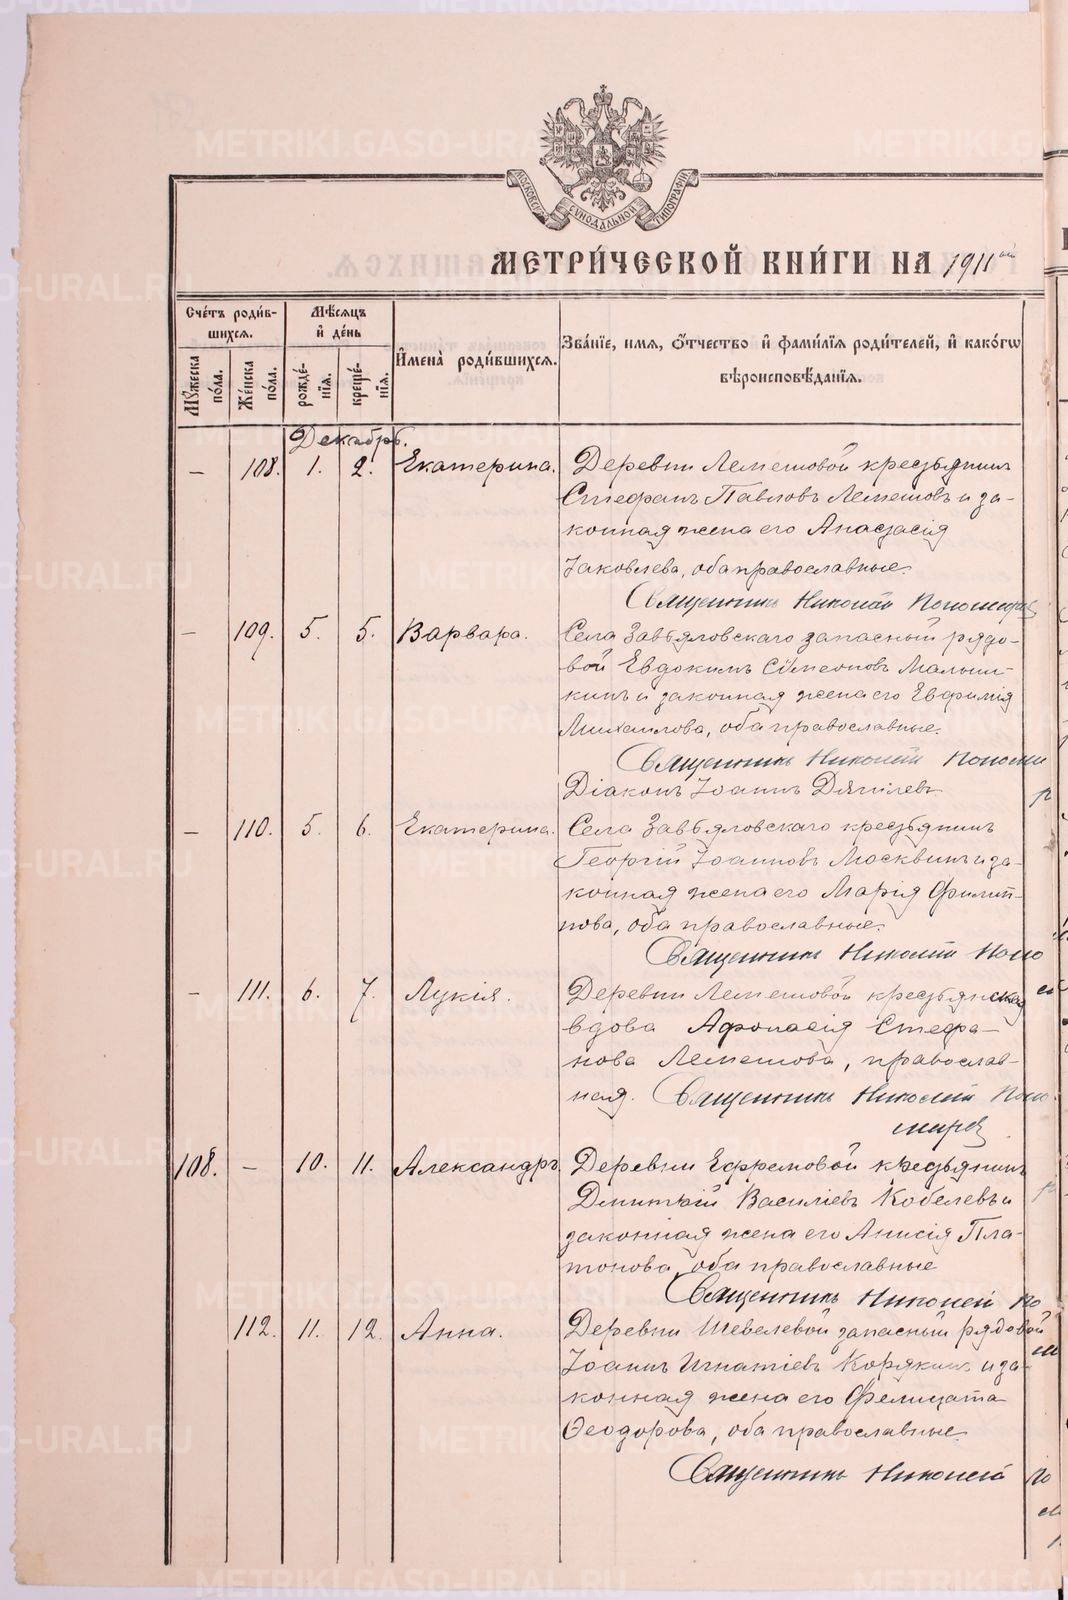 METRIKI.GASO-URAL.RU
МОСКОВСК. СУНОДАЛЬНОЙ ТИПОГРАФІИ
МЕТРИ́ЧЕСКОЙ КНИ́ГИ НА 1911 ый
Сче́тъ роди́в-
шихсѧ.
Мѣ́сѧцъ
и҆ де́нь
И҆мена̀ роди́вшихсѧ.
Зва́нїе, имѧ, ѻ҆́тчество и҆ фами́лїѧ роди́телей, и҆ како́гѡ
вѣроисповѣ́данїѧ.
Мꙋ́жеска по́ла.
Же́нска по́ла.
рожде́-нїѧ.
креще́-нїѧ.
Декабрь.
— 108. 1. 2. Екатерина. Деревни Лемешовой крестьянинъ
Стефанъ Павловъ Лемешовъ и за-
конная жена его Анастасія
Іаковлева, оба православные.
Священникъ Николай Пономарев
— 109. 5. 5. Варвара. Села Завьяловскаго запасный рядо-
вой Евдокимъ Сѵмеоновъ Малыш-
кинъ и законная жена его Евфимія
Михаилова, оба православные.
Священникъ Николай Пономи
Діаконъ Іоаннъ Дягилевъ р
— 110. 5. 6. Екатерина. Села Завьяловскаго крестьянинъ
Георгій Іоанновъ Москвинъ и за-
конная жена его Марія Филип-
пова, оба православные.
Священникъ Николай Поно
— 111. 6. 7. Лукія. Деревни Лемешовой крестьянская
вдова Афонасія Стефа-
нова Лемешова, православ-
ная. Священникъ Николай Поно
марев
108. — 10. 11. Александръ Деревни Ефремовой крестьянинъ
Дмитрій Василіевъ Кобелевъ и
законная жена его Анисія Пла-
тонова, оба православные
Священникъ Николай По
112. 11. 12. Анна. Деревни Шевелевой запасный рядовой
Іоаннъ Игнатіевъ Корякинъ и за-
конная жена его Фелицата
Ѳеодорова, оба православные.
Священникъ Николай По